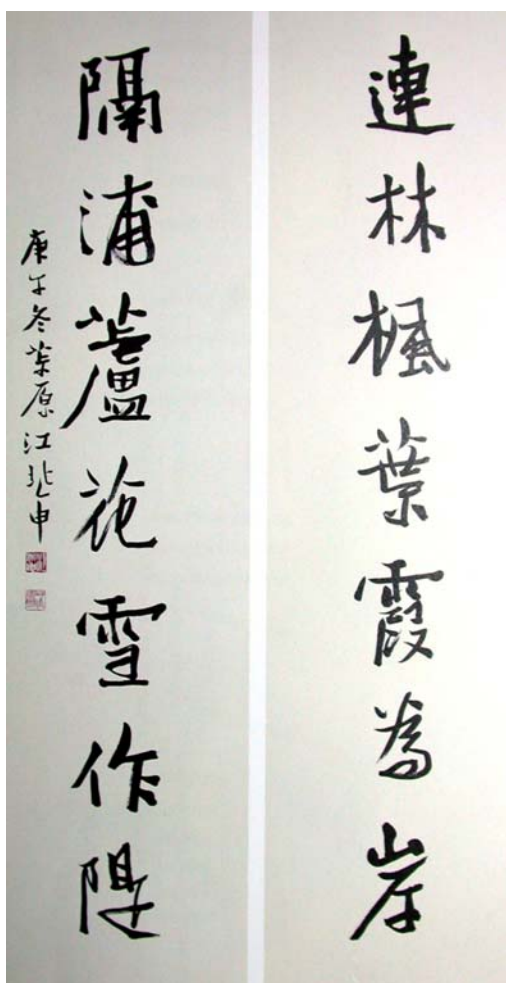 連林楓葉霞為岸
隔浦蘆花雪作隄
庚午冬茮原江兆申